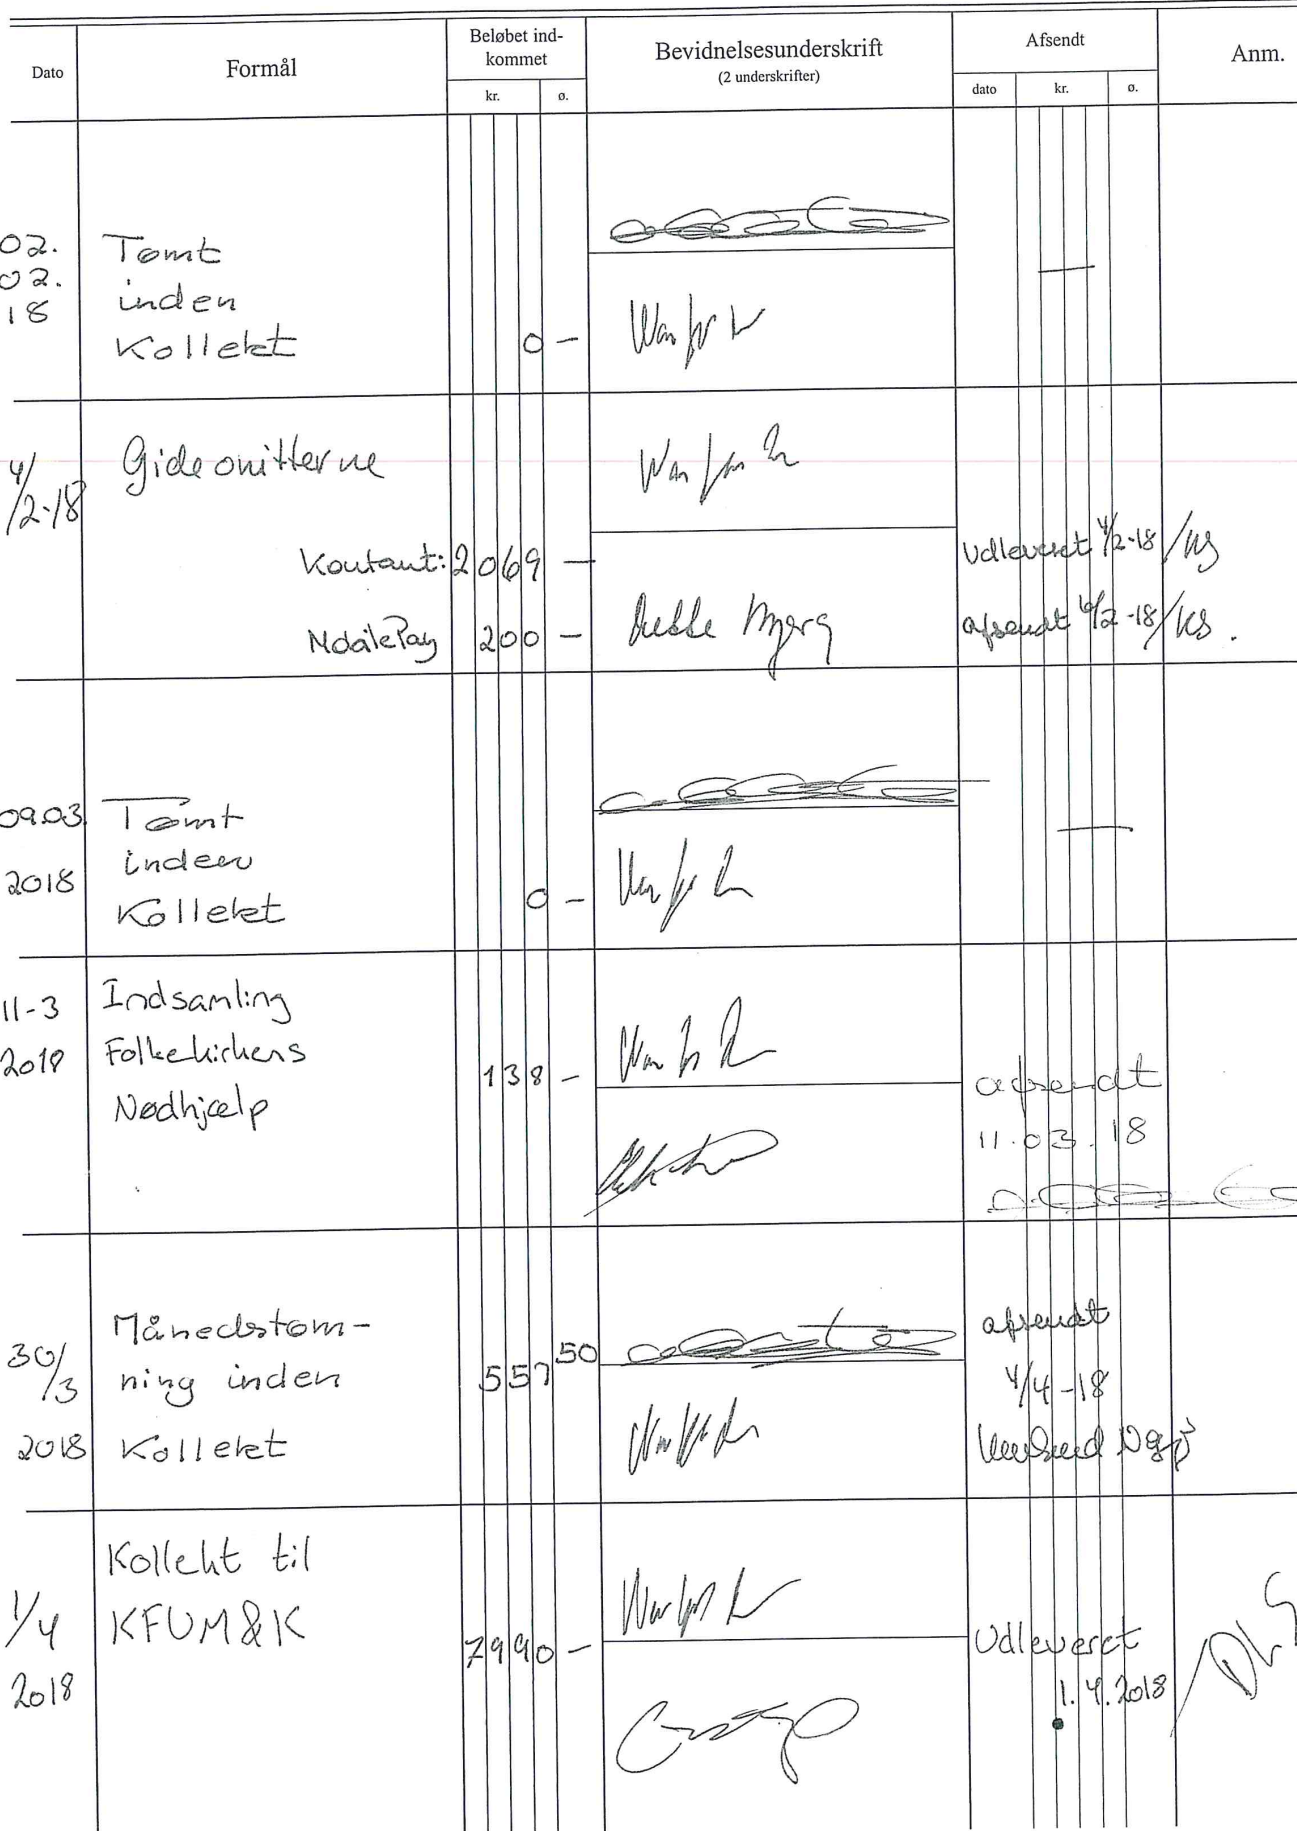 Dato
Formål
Beløbet ind-
kommet
kr.
ø.
Bevidnelsesunderskrift
(2 underskrifter)
Afsendt
dato
kr.
ø.
Anm.
02.
02.
18
Tømt
inden
Kollekt
0 –
4/2-18
Gideonitterne
Kontant: 2069 –
Udleveret 4/2-18 / KS
MobilePay 200 –
afsendt 6/2-18 / KS.
09.03
2018
Tømt
inden
Kollekt
0 –
11-3
2018
Indsamling
Folkekirkens
Nødhjælp
138 –
afsendt
11.03.18
30/3
2018
Månedstøm-
ning inden
Kollekt
557 50
afsendt
4/4-18
1/4
2018
Kollekt til
KFUM&K
7990 –
Udleveret
1.4.2018